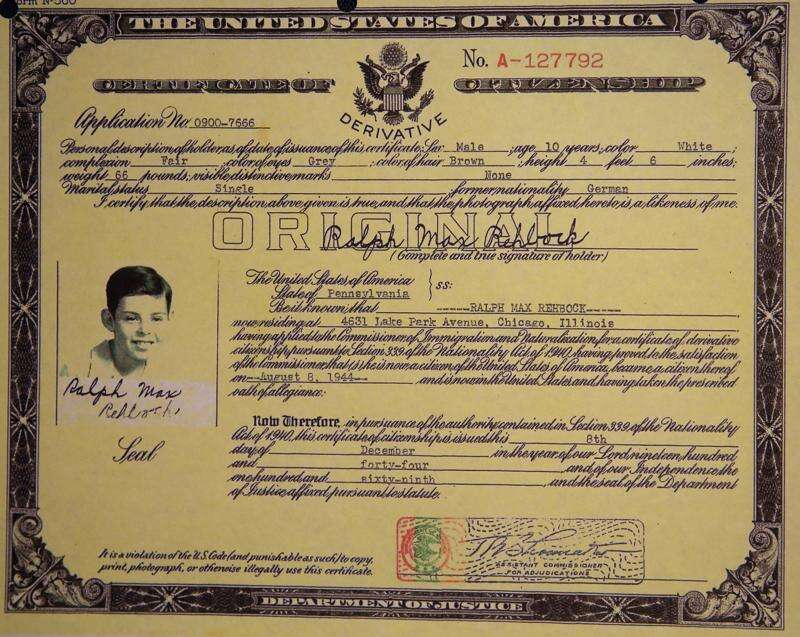 Form N-560
THE UNITED STATES OF AMERICA
No. A-127792
CERTIFICATE OF CITIZENSHIP
DERIVATIVE
Application No. 0900-7666
Personal description of holder as of date of issuance of this certificate: Sex Male ; age 10 years, color White ;
complexion Fair ; color of eyes Grey ; color of hair Brown ; height 4 feet 6 inches;
weight 66 pounds; visible distinctive marks None
Marital status Single former nationality German
I certify that the description above given is true, and that the photograph affixed hereto is a likeness of me.
ORIGINAL
Ralph Max Rehbock
(Complete and true signature of holder)
The United States of America } ss:
State of Pennsylvania
Be it known that ------RALPH MAX REHBOCK-----
now residing at 4631 Lake Park Avenue, Chicago, Illinois
having applied to the Commissioner of Immigration and Naturalization for a certificate of derivative
citizenship pursuant to Section 339 of the Nationality Act of 1940, having proved to the satisfaction
of the Commissioner, that (s)he is now a citizen of the United States of America, became a citizen thereof
on --August 8, 1944-- and is now in the United States and having taken the prescribed
oath of allegiance:
Ralph Max
Rehbock
Seal
Now Therefore, in pursuance of the authority contained in Section 339 of the Nationality
Act of 1940, this certificate of citizenship is issued this 8th
day of December in the year of our Lord nineteen hundred
and forty-four and of our Independence the
one hundred and sixty-ninth , and the seal of the Department
of Justice affixed pursuant to statute.
It is a violation of the U.S. Code (and punishable as such) to copy,
print, photograph, or otherwise illegally use this certificate.
ASSISTANT COMMISSIONER
FOR ADJUDICATIONS
DEPARTMENT OF JUSTICE